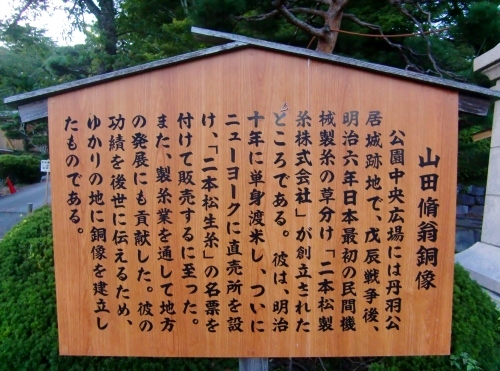 山田脩翁銅像
公園中央広場には丹羽公
居城跡地で、戊辰戦争後、
明治六年日本最初の民間機
械製糸の草分け「二本松製
糸株式会社」が創立された
ところである。彼は、明治
十年に単身渡米し、ついに
ニューヨークに直売所を設
け、「二本松生糸」の名票を
付けて販売するに至った。
また、製糸業を通して地方
の発展にも貢献した。彼の
功績を後世に伝えるため、
ゆかりの地に銅像を建立し
たものである。